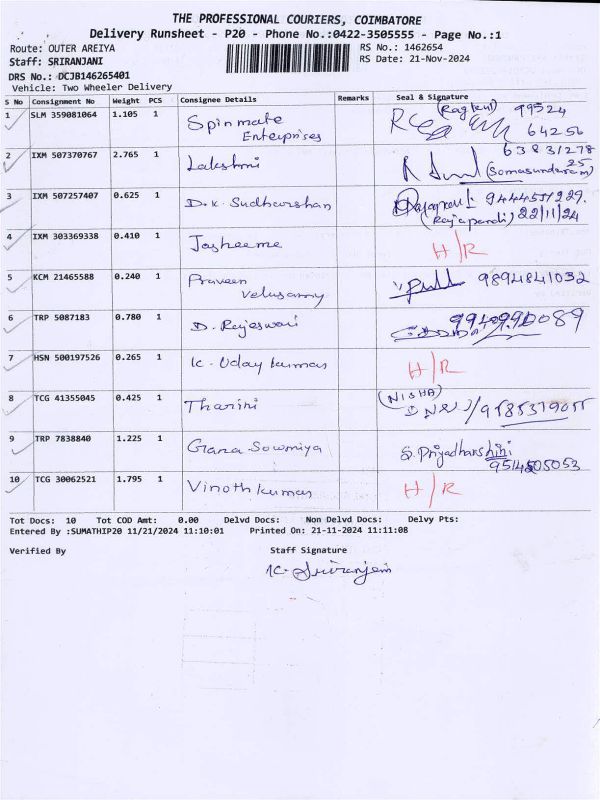 THE PROFESSIONAL COURIERS, COIMBATORE
Delivery Runsheet - P20 - Phone No.:0422-3505555 - Page No.:1
Route: OUTER AREIYA RS No.: 1462654
Staff: SRIRANJANI RS Date: 21-Nov-2024
DRS No.: DCJB146265401
Vehicle: Two Wheeler Delivery
S No Consignment No Weight PCS Consignee Details Remarks Seal & Signature
1 SLM 359081064 1.105 1 Spinmate Enterprises 99524
64256
2 IXM 507370767 2.765 1 Lakshmi 63831278
25
(Somasundaram)
3 IXM 507257407 0.625 1 D.K. Sudharshan
(Rajapandi) 22/11/24
4 IXM 303369338 0.410 1 Jasheeme H/R
5 KCM 21465588 0.240 1 Praveen Velusamy 9894841032
6 TRP 5087183 0.780 1 D. Rajeswari
7 HSN 500197526 0.265 1 K. Uday kumar H/R
8 TCG 41355045 0.425 1 Tharini (NISHA)
9 TRP 7838840 1.225 1 Gana Sowmiya S. Priyadharshini
10 TCG 30062521 1.795 1 Vinoth kumar H/R
Tot Docs: 10 Tot COD Amt: 0.00 Delvd Docs: Non Delvd Docs: Delvy Pts:
Entered By :SUMATHIP20 11/21/2024 11:10:01 Printed On: 21-11-2024 11:11:08
Verified By Staff Signature
K. Sriranjani